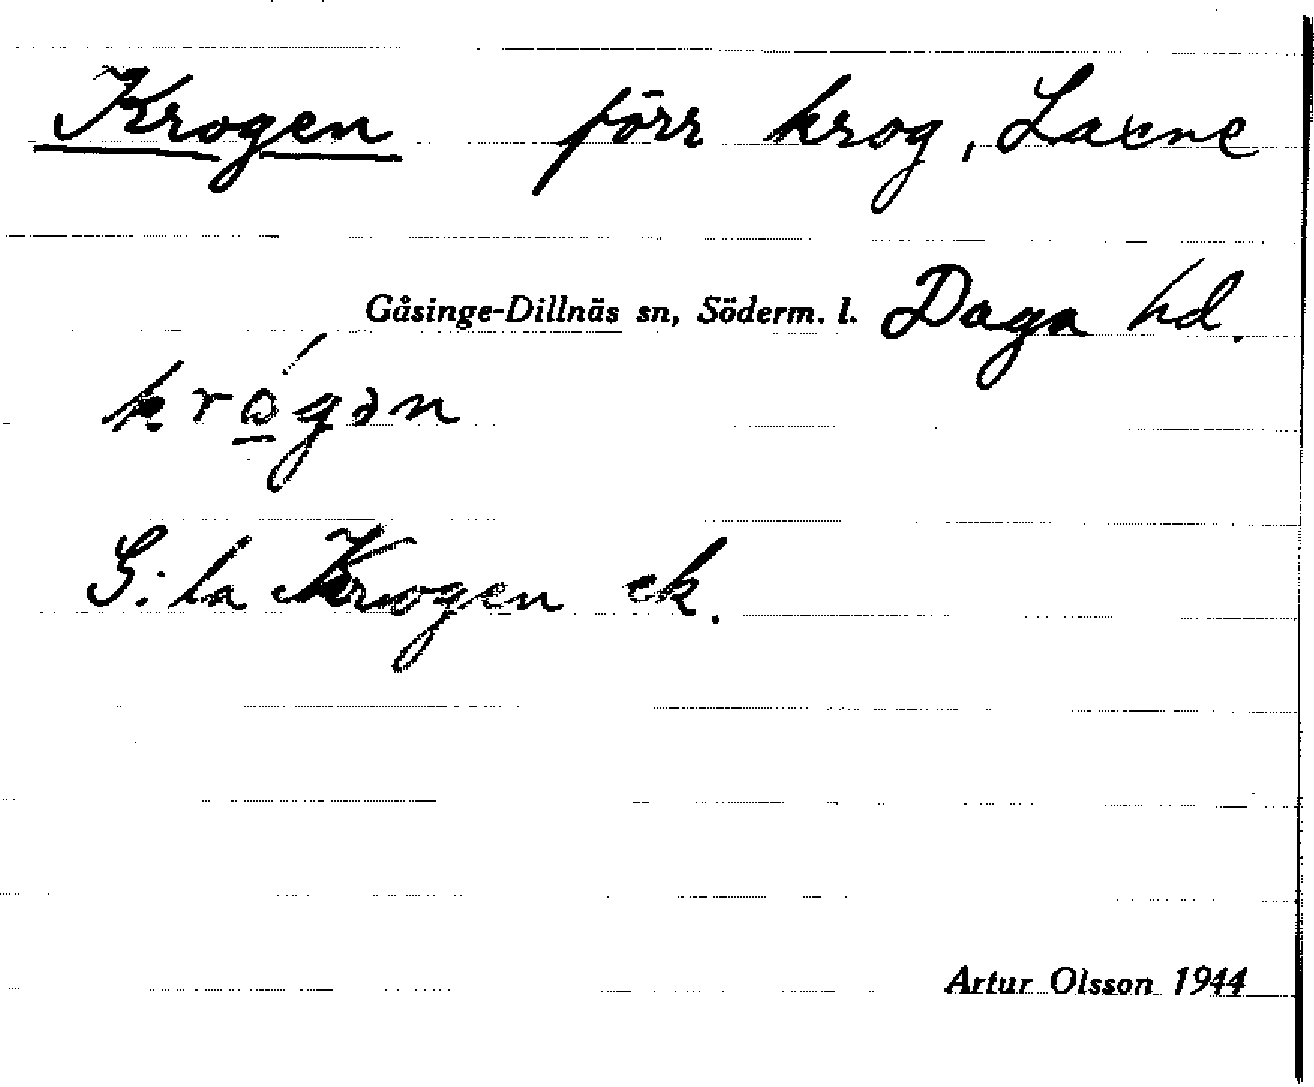 Krogen förr krog, Laxne
Gåsinge-Dillnäs sn, Söderm. l. Daga hd.
krǫ́gən
S: la Krogen ek.
Artur Olsson 1944